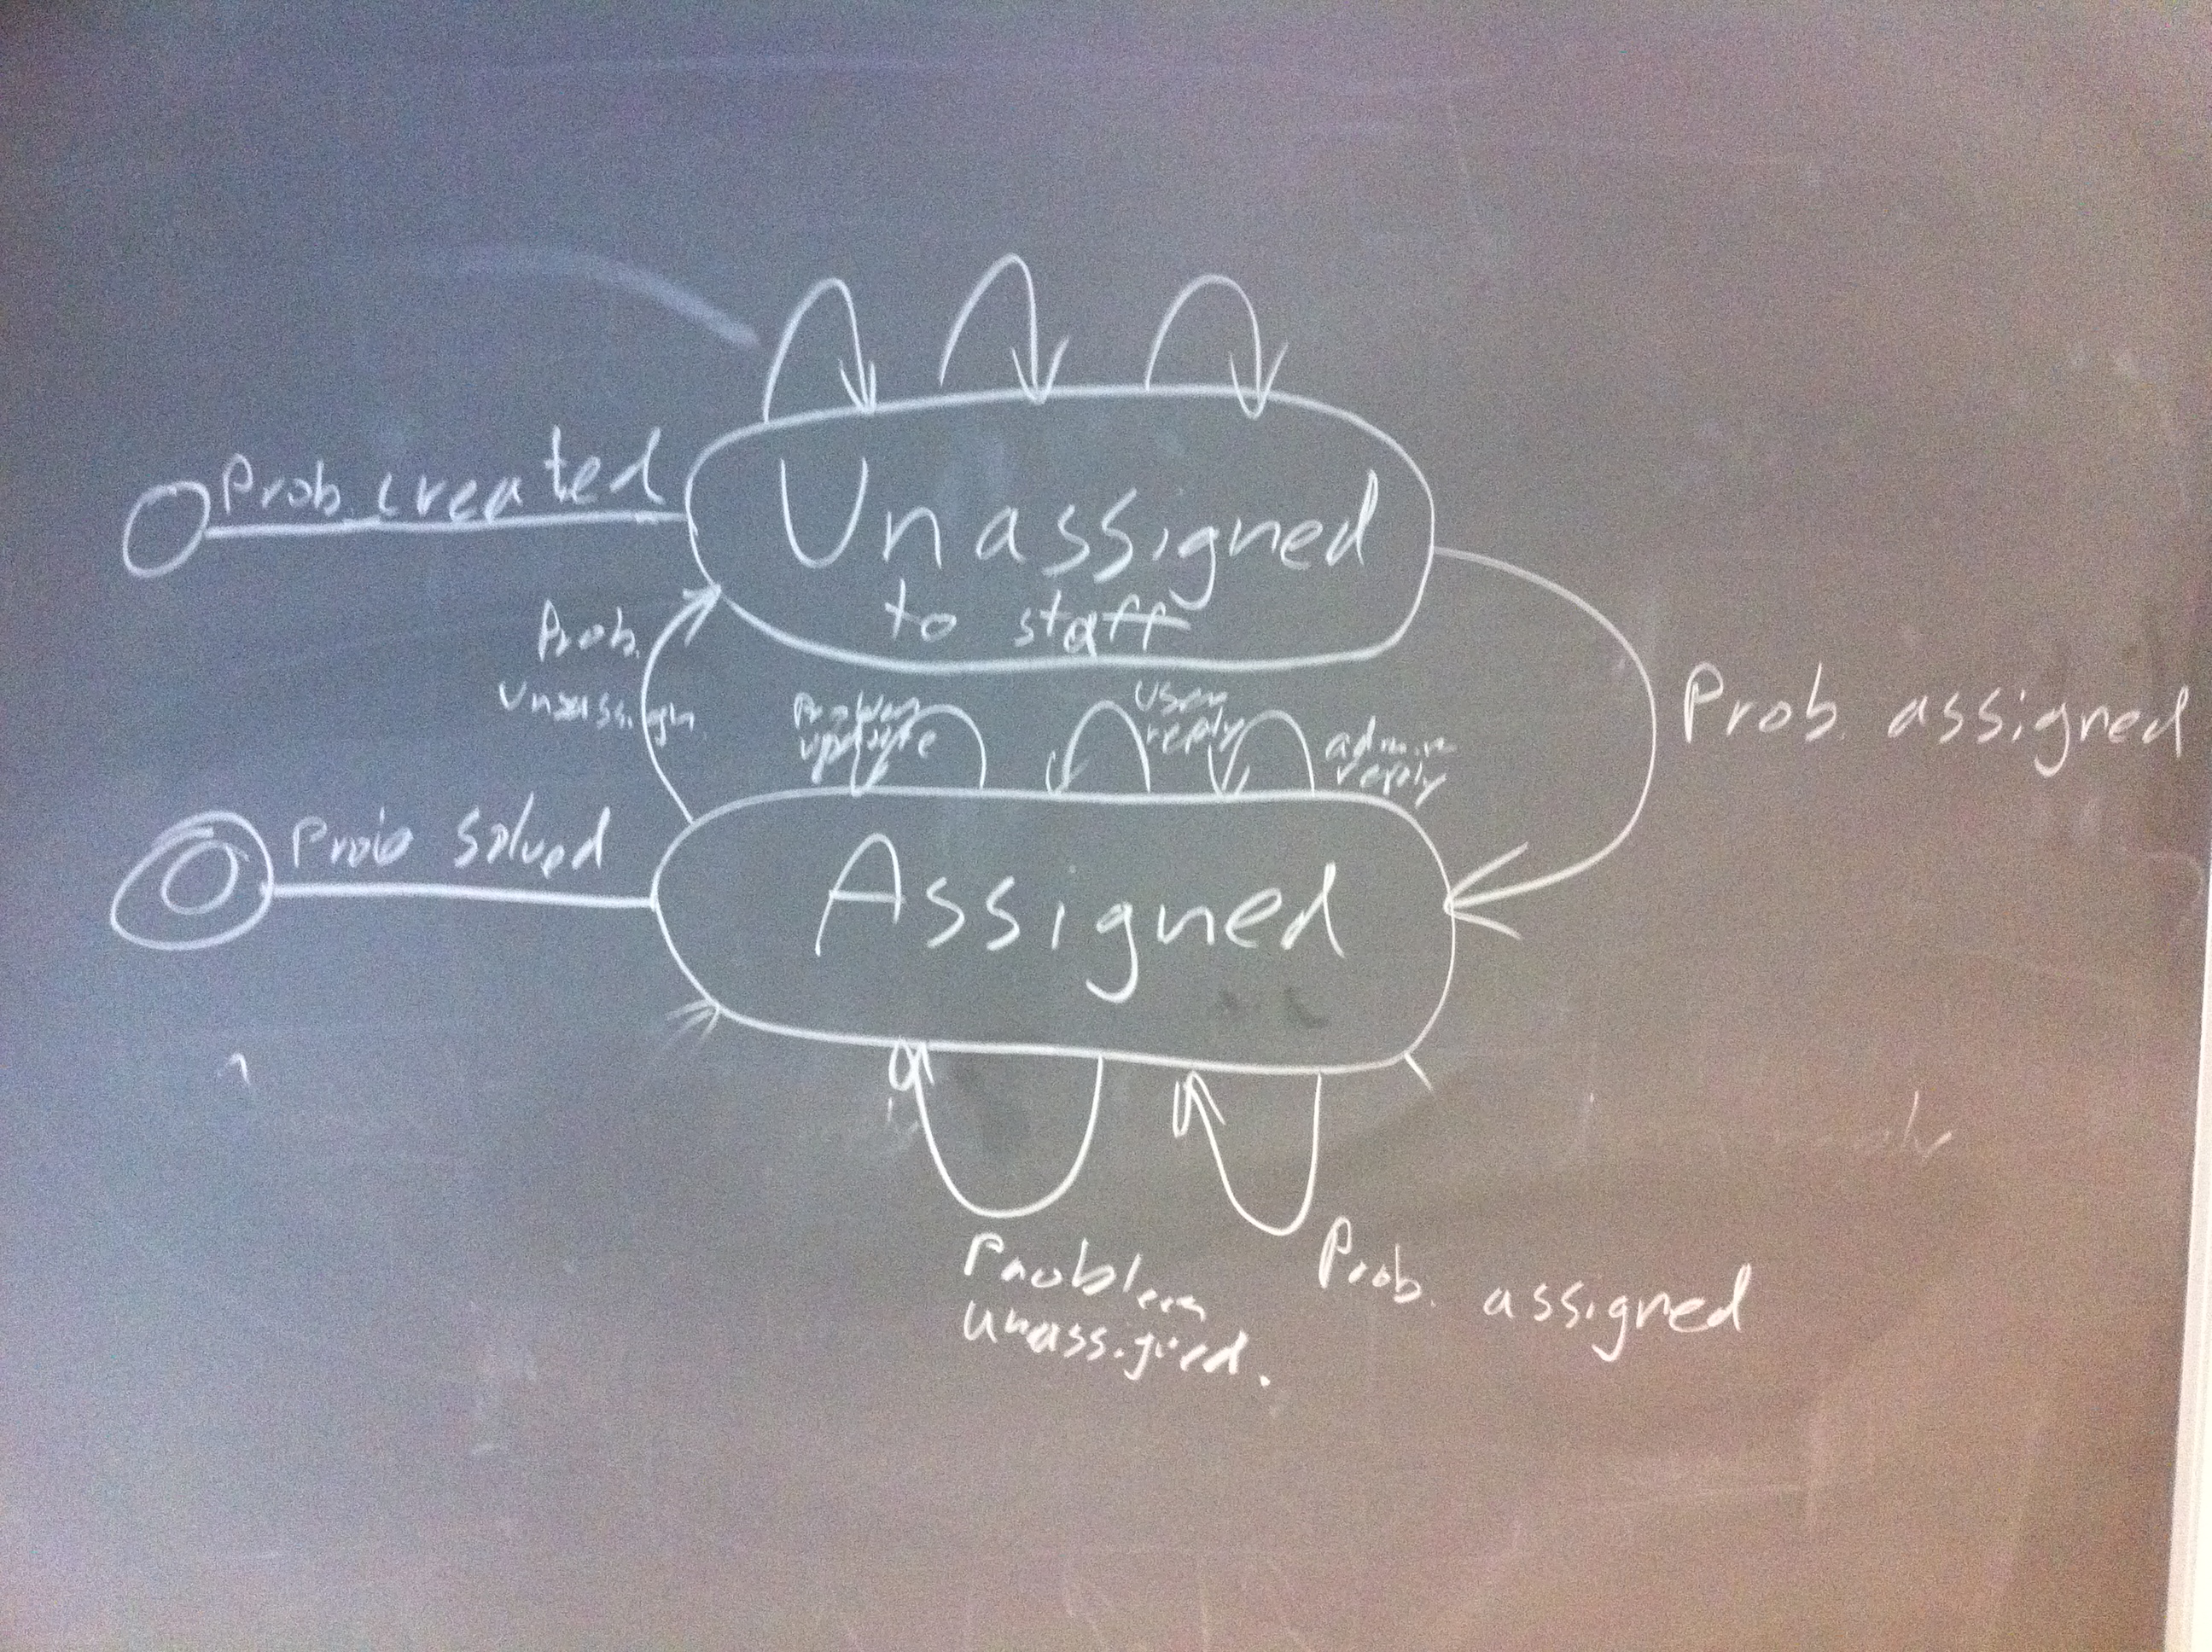 Prob. created
Unassigned
to staff
Prob.
unassign
Problem
update
user
reply
admin
reply
Prob. assigned
Prob solved
Assigned
Problem
unassigned.
Prob. assigned